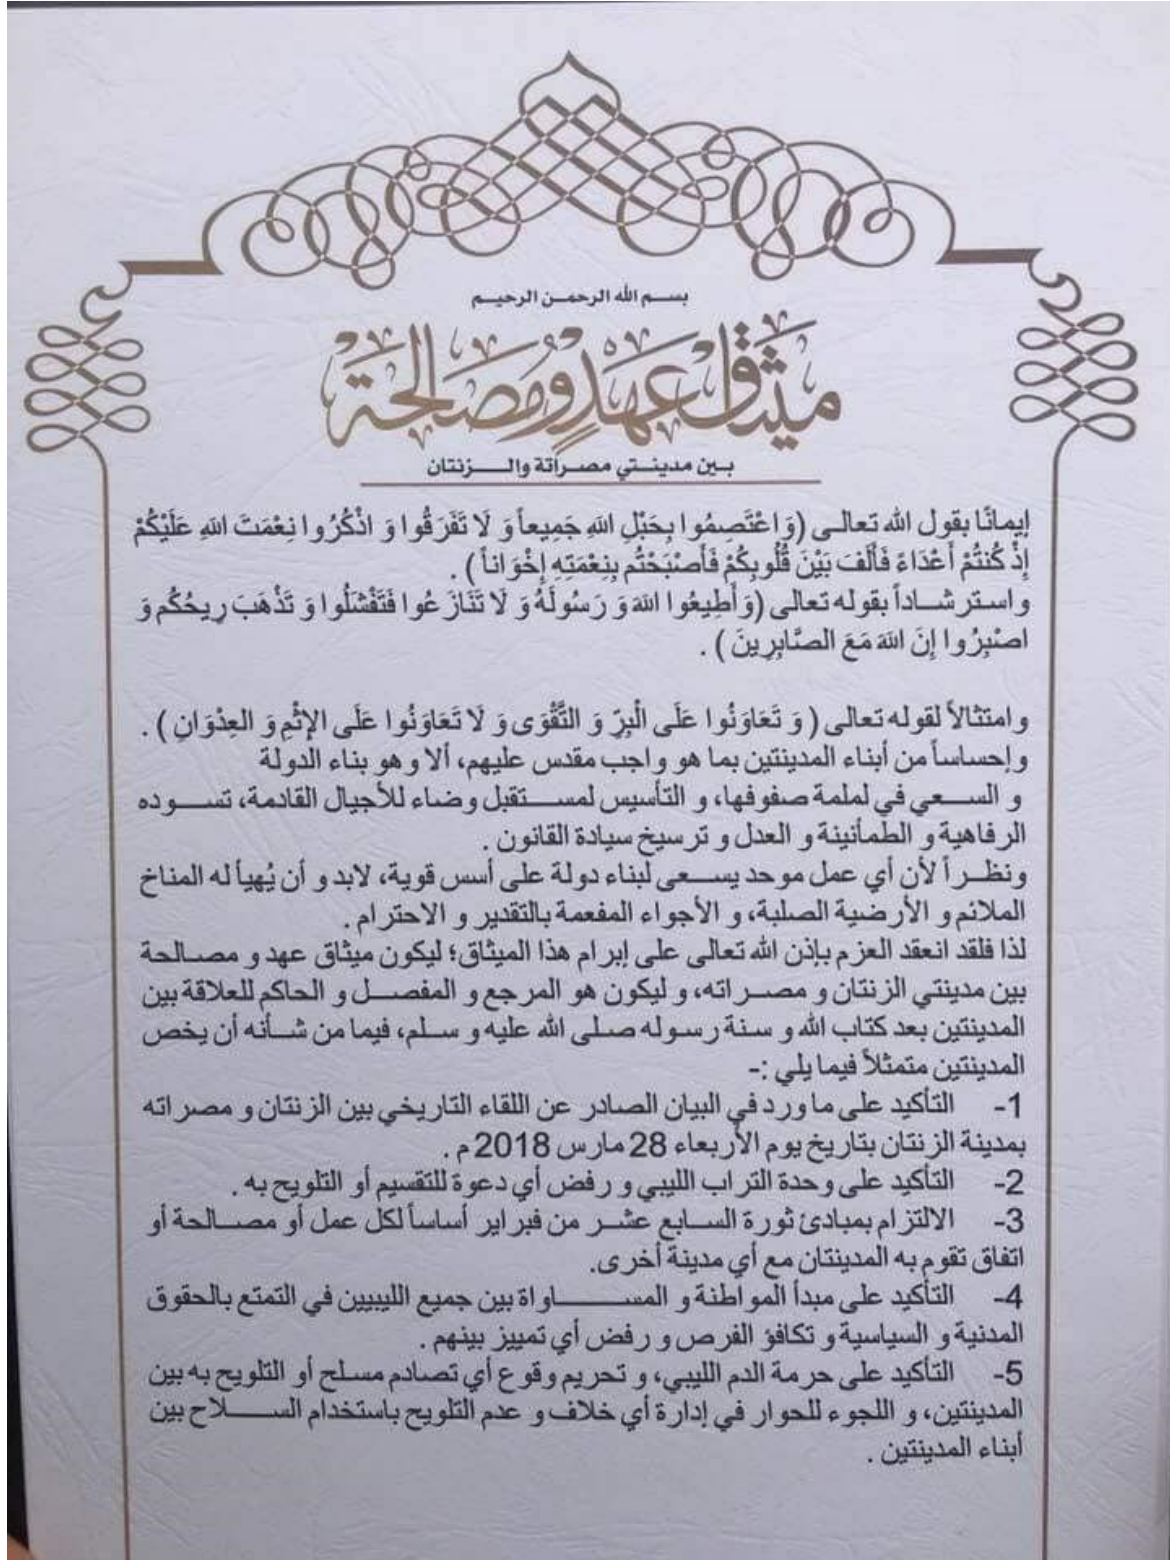 بسم الله الرحمن الرحيم
ميثاق عهدٍ ومُصالحة
بين مدينتي مصراتة والزنتان
إيمانًا بقول الله تعالى (وَاعْتَصِمُوا بِحَبْلِ اللهِ جَمِيعاً وَ لَا تَفَرَقُوا وَ اذْكُرُوا نِعْمَتَ اللهِ عَلَيْكُمْ
إِذْ كُنتُمْ أَعْدَاءً فَأَلَفَ بَيْنَ قُلُوبِكُمْ فَأَصْبَحْتُم بِنِعْمَتِهِ إِخْوَاناً ) .
واسترشاداً بقوله تعالى (وَأَطِيعُوا اللهَ وَ رَسُولَهُ وَ لَا تَنَازَعُوا فَتَفْشَلُوا وَ تَذْهَبَ رِيحُكُم وَ
اصْبِرُوا إِنَ اللهَ مَعَ الصَّابِرِينَ ) .
وامتثالاً لقوله تعالى ( وَ تَعَاوَنُوا عَلَى الْبِرِّ وَ التَّقْوَى وَ لَا تَعَاوَنُوا عَلَى الإِثْمِ وَ العِدْوَانِ ) .
وإحساساً من أبناء المدينتين بما هو واجب مقدس عليهم، ألا وهو بناء الدولة
و السعي في لملمة صفوفها، و التأسيس لمستقبل وضاء للأجيال القادمة، تسوده
الرفاهية و الطمأنينة و العدل و ترسيخ سيادة القانون .
ونظراً لأن أي عمل موحد يسعى لبناء دولة على أسس قوية، لابد و أن يُهيأ له المناخ
الملائم و الأرضية الصلبة، و الأجواء المفعمة بالتقدير و الاحترام .
لذا فلقد انعقد العزم بإذن الله تعالى على إبرام هذا الميثاق؛ ليكون ميثاق عهد و مصالحة
بين مدينتي الزنتان و مصراته، و ليكون هو المرجع و المفصل و الحاكم للعلاقة بين
المدينتين بعد كتاب الله و سنة رسوله صلى الله عليه و سلم، فيما من شأنه أن يخص
المدينتين متمثلاً فيما يلي :-
1- التأكيد على ما ورد في البيان الصادر عن اللقاء التاريخي بين الزنتان و مصراته
بمدينة الزنتان بتاريخ يوم الأربعاء 28 مارس 2018 م .
2- التأكيد على وحدة التراب الليبي و رفض أي دعوة للتقسيم أو التلويح به .
3- الالتزام بمبادئ ثورة السابع عشر من فبراير أساساً لكل عمل أو مصالحة أو
اتفاق تقوم به المدينتان مع أي مدينة أخرى.
4- التأكيد على مبدأ المواطنة و المساواة بين جميع الليبيين في التمتع بالحقوق
المدنية و السياسية و تكافؤ الفرص و رفض أي تمييز بينهم .
5- التأكيد على حرمة الدم الليبي، و تحريم وقوع أي تصادم مسلح أو التلويح به بين
المدينتين، و اللجوء للحوار في إدارة أي خلاف و عدم التلويح باستخدام السلاح بين
أبناء المدينتين .